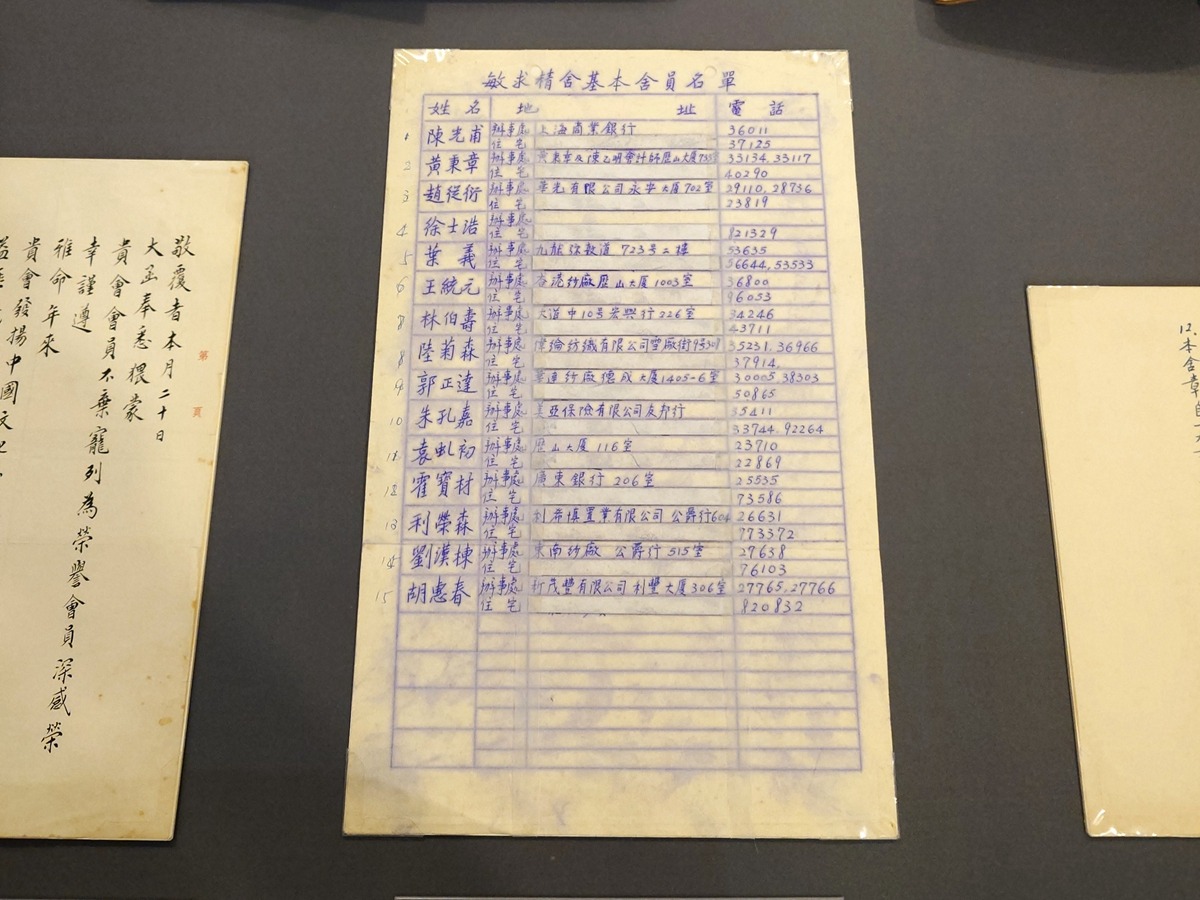 敏求精舍基本舍員名單
姓 名 地 址 電 話
1 陳光甫 辦事處 上海商業銀行 36011
住 宅 37125
2 黃秉章 辦事處 黃秉章及陳乙明會計師歷山大厦735 33134.33117
住 宅 40290
3 趙從衍 辦事處 華光有限公司永安大厦702室 29110.28736
住 宅 23819
4 徐士浩 辦事處
住 宅 821329
5 葉 義 辦事處 九龍弥敦道 723号二樓 53635
住 宅 56644,53533
6 王統元 辦事處 香港紗廠歷山大厦1003室 36800
住 宅 96053
8 林伯壽 辦事處 大道中10号宏興行226室 34246
住 宅 43711
8 陸菊森 辦事處 偉綸紡織有限公司 35231.36966
住 宅 37914
9 郭正達 辦事處 華達紗廠德成大厦1405-6室 30005.38303
住 宅 50865
10 朱孔嘉 辦事處 美亞保險有限公司友邦行 35411
住 宅 33744.92264
袁虬初 辦事處 歷山大厦 116室 23710
住 宅 22869
12 霍寶材 辦事處 廣東銀行 206室 25535
住 宅 73586
13 利榮森 辦事處 利希慎置業有限公司 公爵行604 26631
住 宅 773372
14 劉漢棟 辦事處 東南紗廠 公爵行 515室 27638
住 宅 76103
15 胡惠春 辦事處 新茂豐有限公司利豐大厦306室 27765.27766
住 宅 820832
敬覆者本月二十日
大函奉悉猥蒙
貴會會員不棄寵列為榮譽會員深感榮
幸謹遵
雅命 年來
貴會發揚中國文
第 頁
12.本舍章